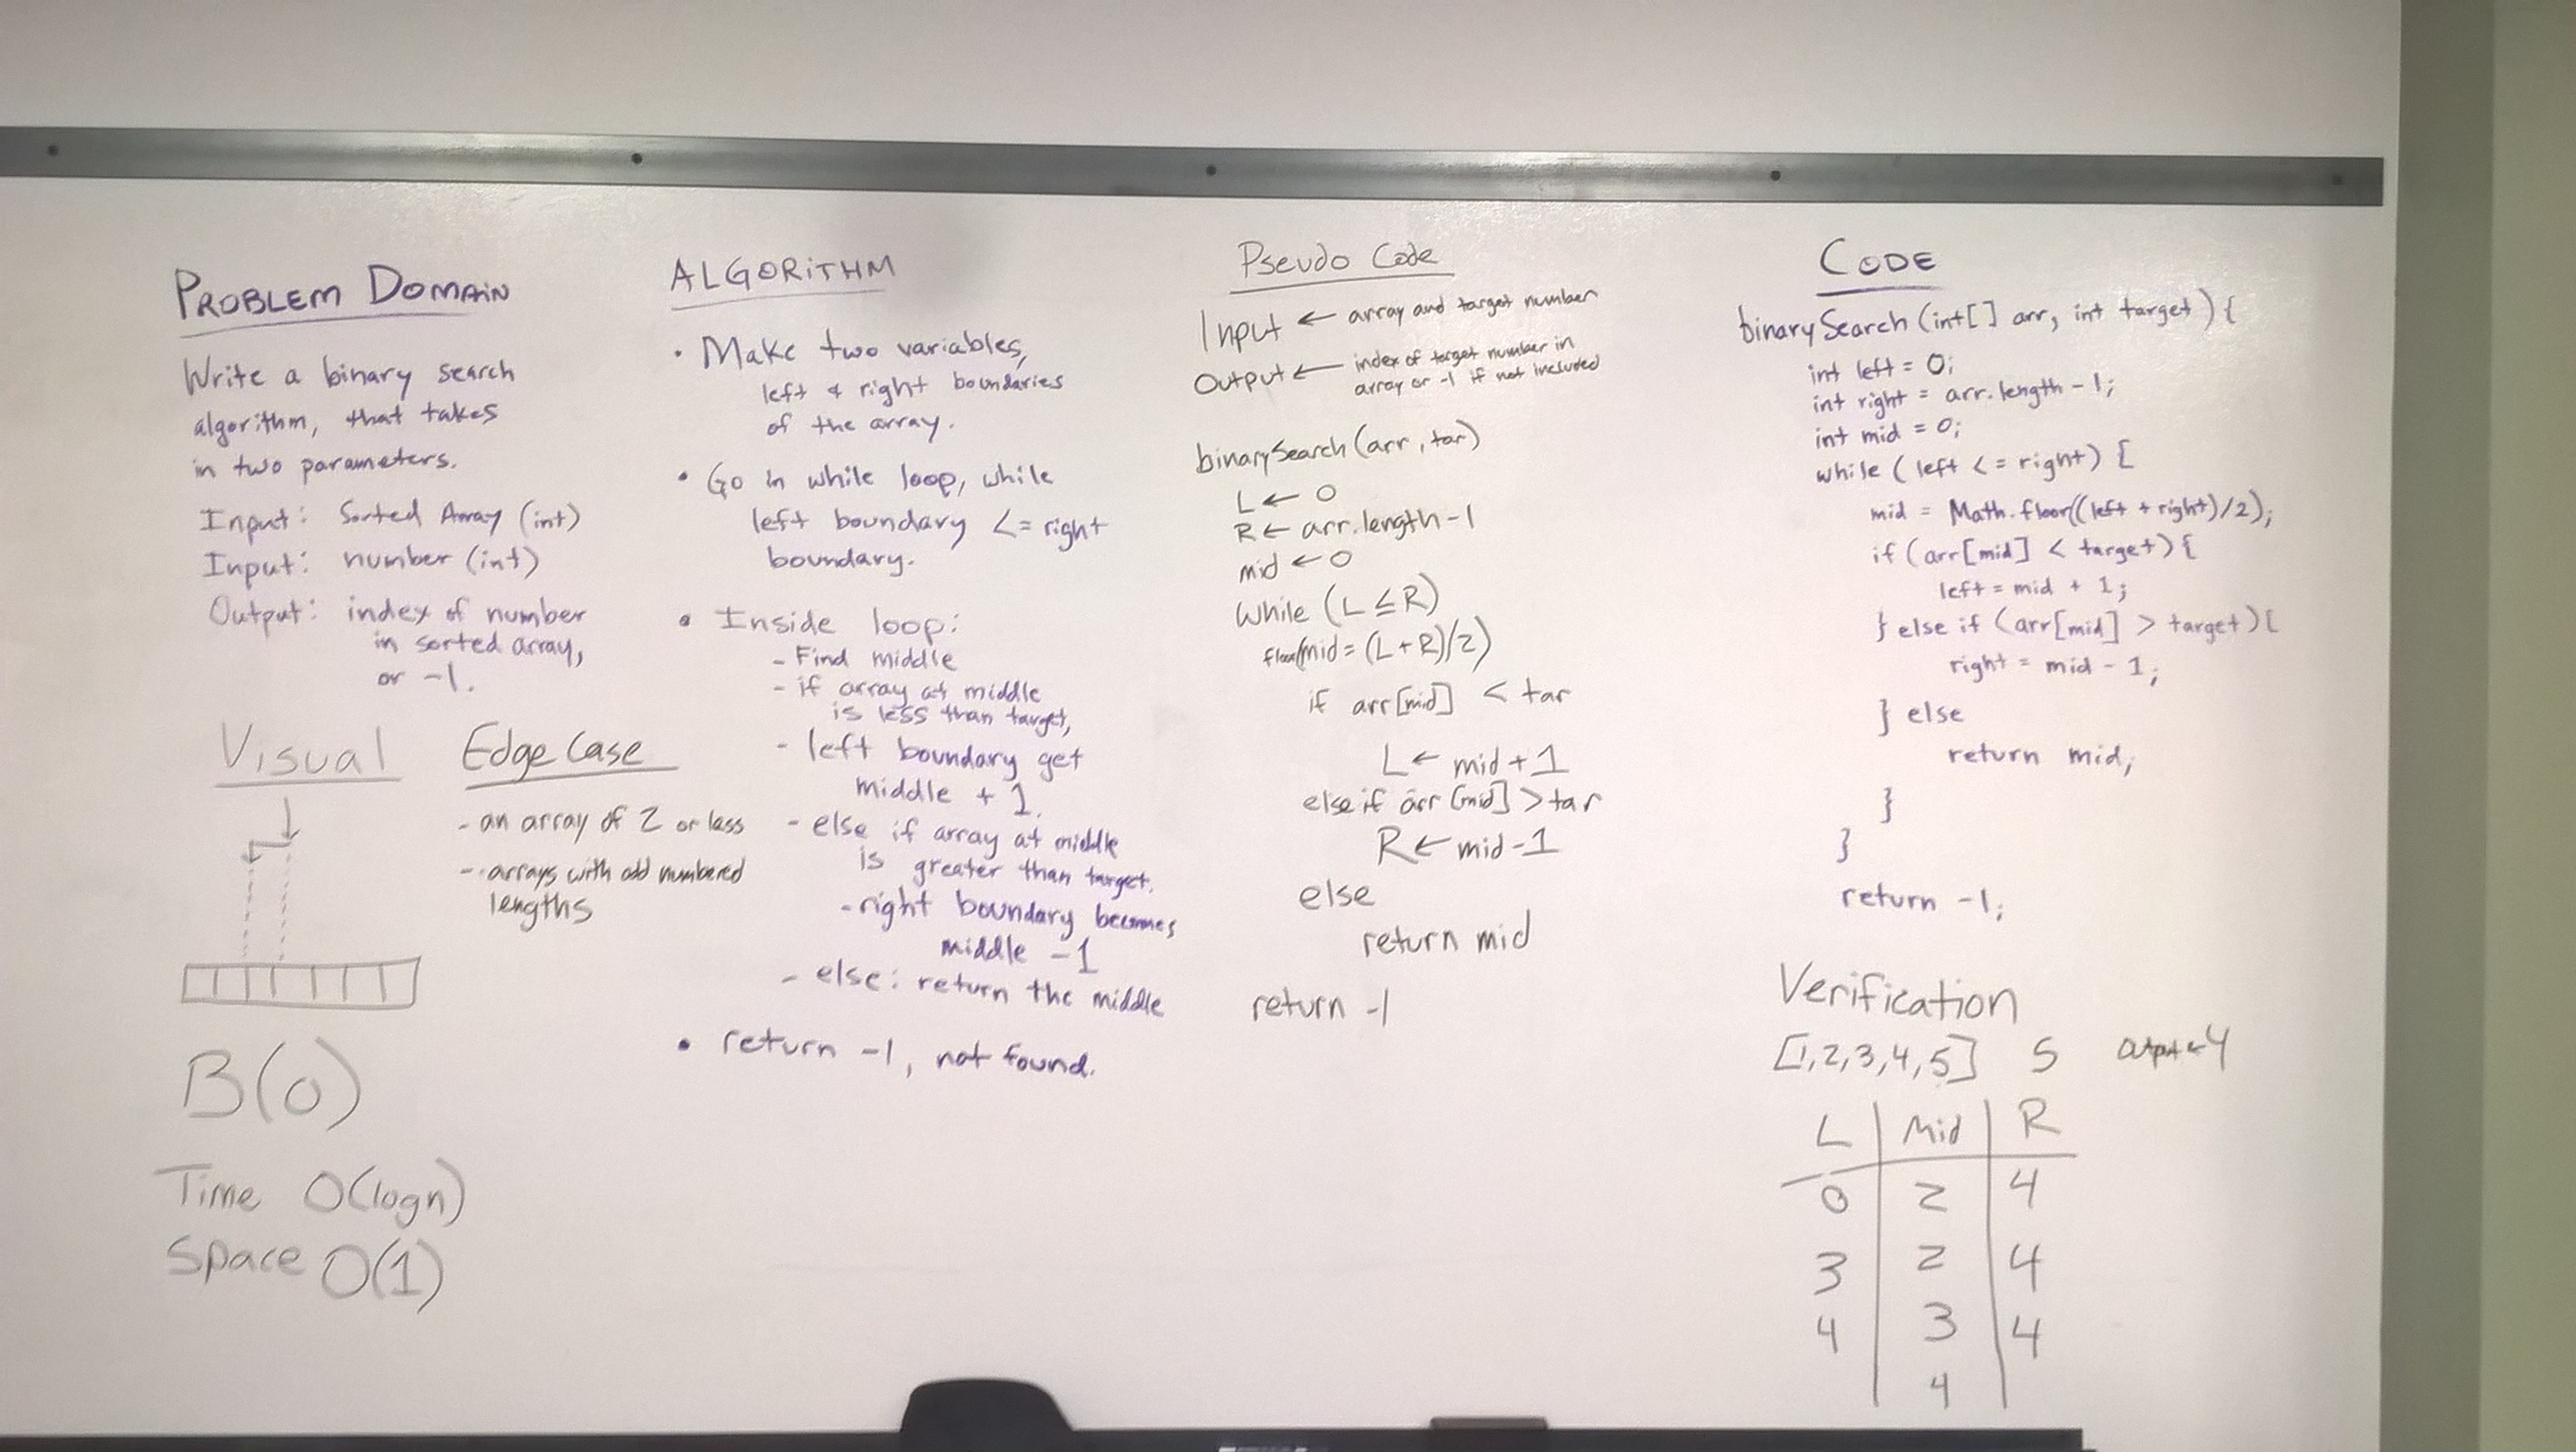 PROBLEM DOMAIN
Write a binary search
algorithm, that takes
in two parameters.
Input: Sorted Array (int)
Input: number (int)
Output: index of number
in sorted array,
or -1.
Visual
Edge Case
- an array of 2 or less
- arrays with odd numbered
lengths
B(0)
Time O(logn)
Space O(1)
ALGORITHM
• Make two variables,
left & right boundaries
of the array.
• Go in while loop, while
left boundary <= right
boundary.
• Inside loop:
- Find middle
- if array at middle
is less than target,
- left boundary get
middle + 1.
- else if array at middle
is greater than target.
- right boundary becomes
middle -1
- else: return the middle
• return -1, not found.
Pseudo Code
Input ← array and target number
Output ← index of target number in
array or -1 if not included
binarySearch(arr, tar)
L ← 0
R ← arr.length-1
mid ← 0
While (L ≤ R)
floor(mid = (L+R)/2)
if arr[mid] < tar
L ← mid + 1
else if arr[mid] > tar
R ← mid-1
else
return mid
return -1
CODE
binarySearch(int[] arr, int target){
int left = 0;
int right = arr.length - 1;
int mid = 0;
while (left <= right) {
mid = Math.floor((left + right)/2);
if (arr[mid] < target){
left = mid + 1;
} else if (arr[mid] > target){
right = mid - 1;
} else
return mid;
}
}
return -1;
Verification
[1,2,3,4,5] 5 output ← 4
L Mid R
0 2 4
3 2 4
4 3 4
4